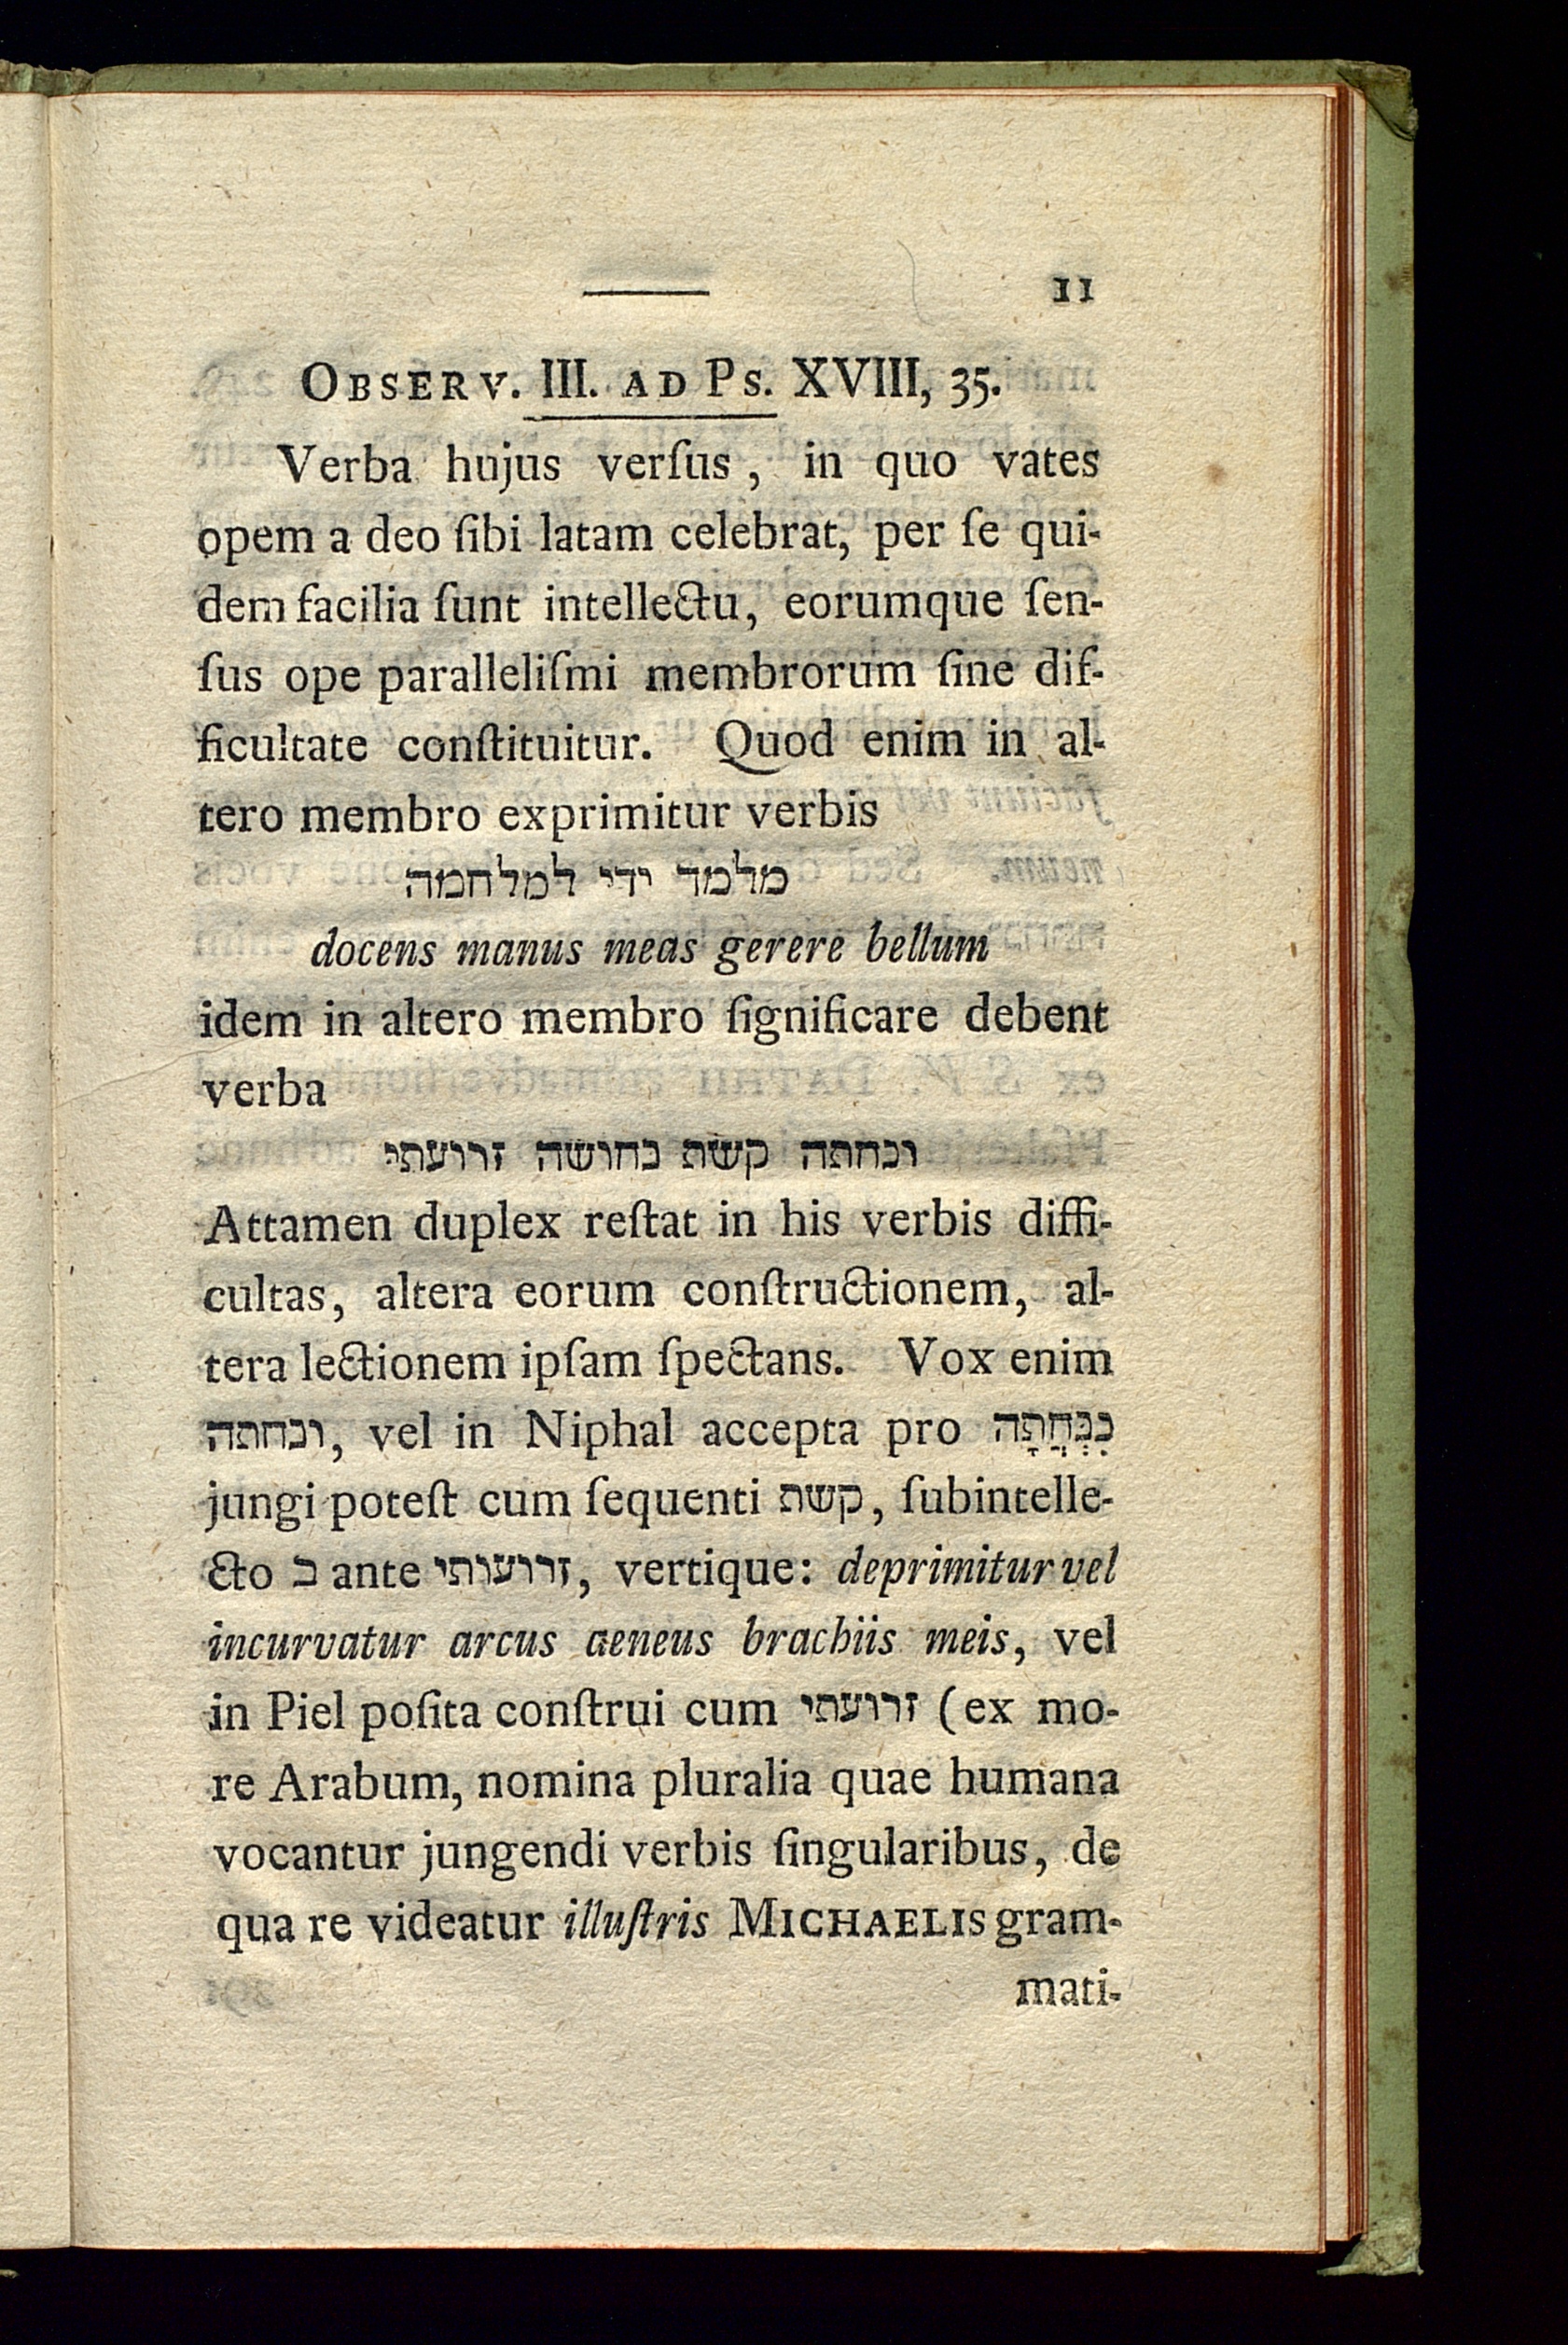 11
OBSERV. III. AD PS. XVIII, 35.
Verba hujus verſus, in quo vates
opem a deo ſibi latam celebrat, per ſe qui-
dem facilia ſunt intellectu, eorumque ſen-
ſus ope paralleliſmi membrorum ſine dif-
ficultate conſtituitur. Quod enim in al-
tero membro exprimitur verbis
מלמד ידי למלחמה
docens manus meas gerere bellum
idem in altero membro ſignificare debent
verba
ונחתה קשת נחושה זרועתי
Attamen duplex reſtat in his verbis diffi-
cultas, altera eorum conſtructionem, al-
tera lectionem ipſam ſpectans. Vox enim
ונחתה, vel in Niphal accepta pro נִנְּחֲתָה
jungi poteſt cum ſequenti קשת, ſubintelle-
cto ב ante זרועותי, vertique: deprimitur vel
incurvatur arcus aeneus brachiis meis, vel
in Piel poſita conſtrui cum זרועתי (ex mo-
re Arabum, nomina pluralia quae humana
vocantur jungendi verbis ſingularibus, de
qua re videatur illuſtris MICHAELIS gram-
mati-